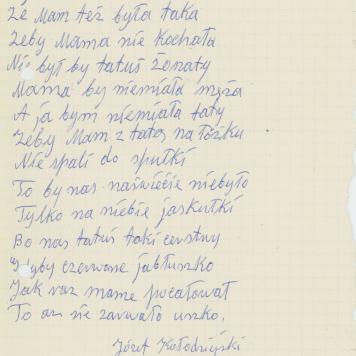 Że Mam też była taka
Żeby Mama nie Kochała
Nie był by tatuś Żonaty
Mama by niemiała męża
A ja bym niemiała taty
Żeby Mam z tatos na łóżku
Nie spali do spułki
To by nas naświecie niebyło
Tylko na niebie jaskułki
Bo nas tatuś taki cerstwy
czerwone jabłuszko
Jak raz mame pocałował
To az sie zarwało uszko.
Józef Kołodziejski